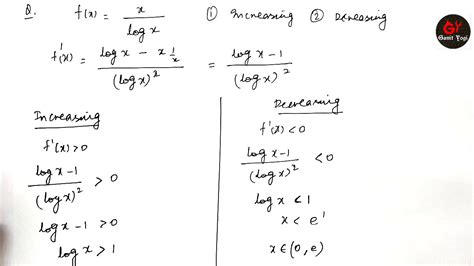 Q. f(x) = x / log x ① Increasing ② Decreasing
f'(x) = (log x - x 1/x) / (log x)² = (log x - 1) / (log x)²
Increasing
f'(x) > 0
(log x - 1) / (log x)² > 0
log x - 1 > 0
log x > 1
Decreasing
f'(x) < 0
(log x - 1) / (log x)² < 0
log x < 1
x < e¹
x ∈ (0, e)
GY
Ganit Yogi